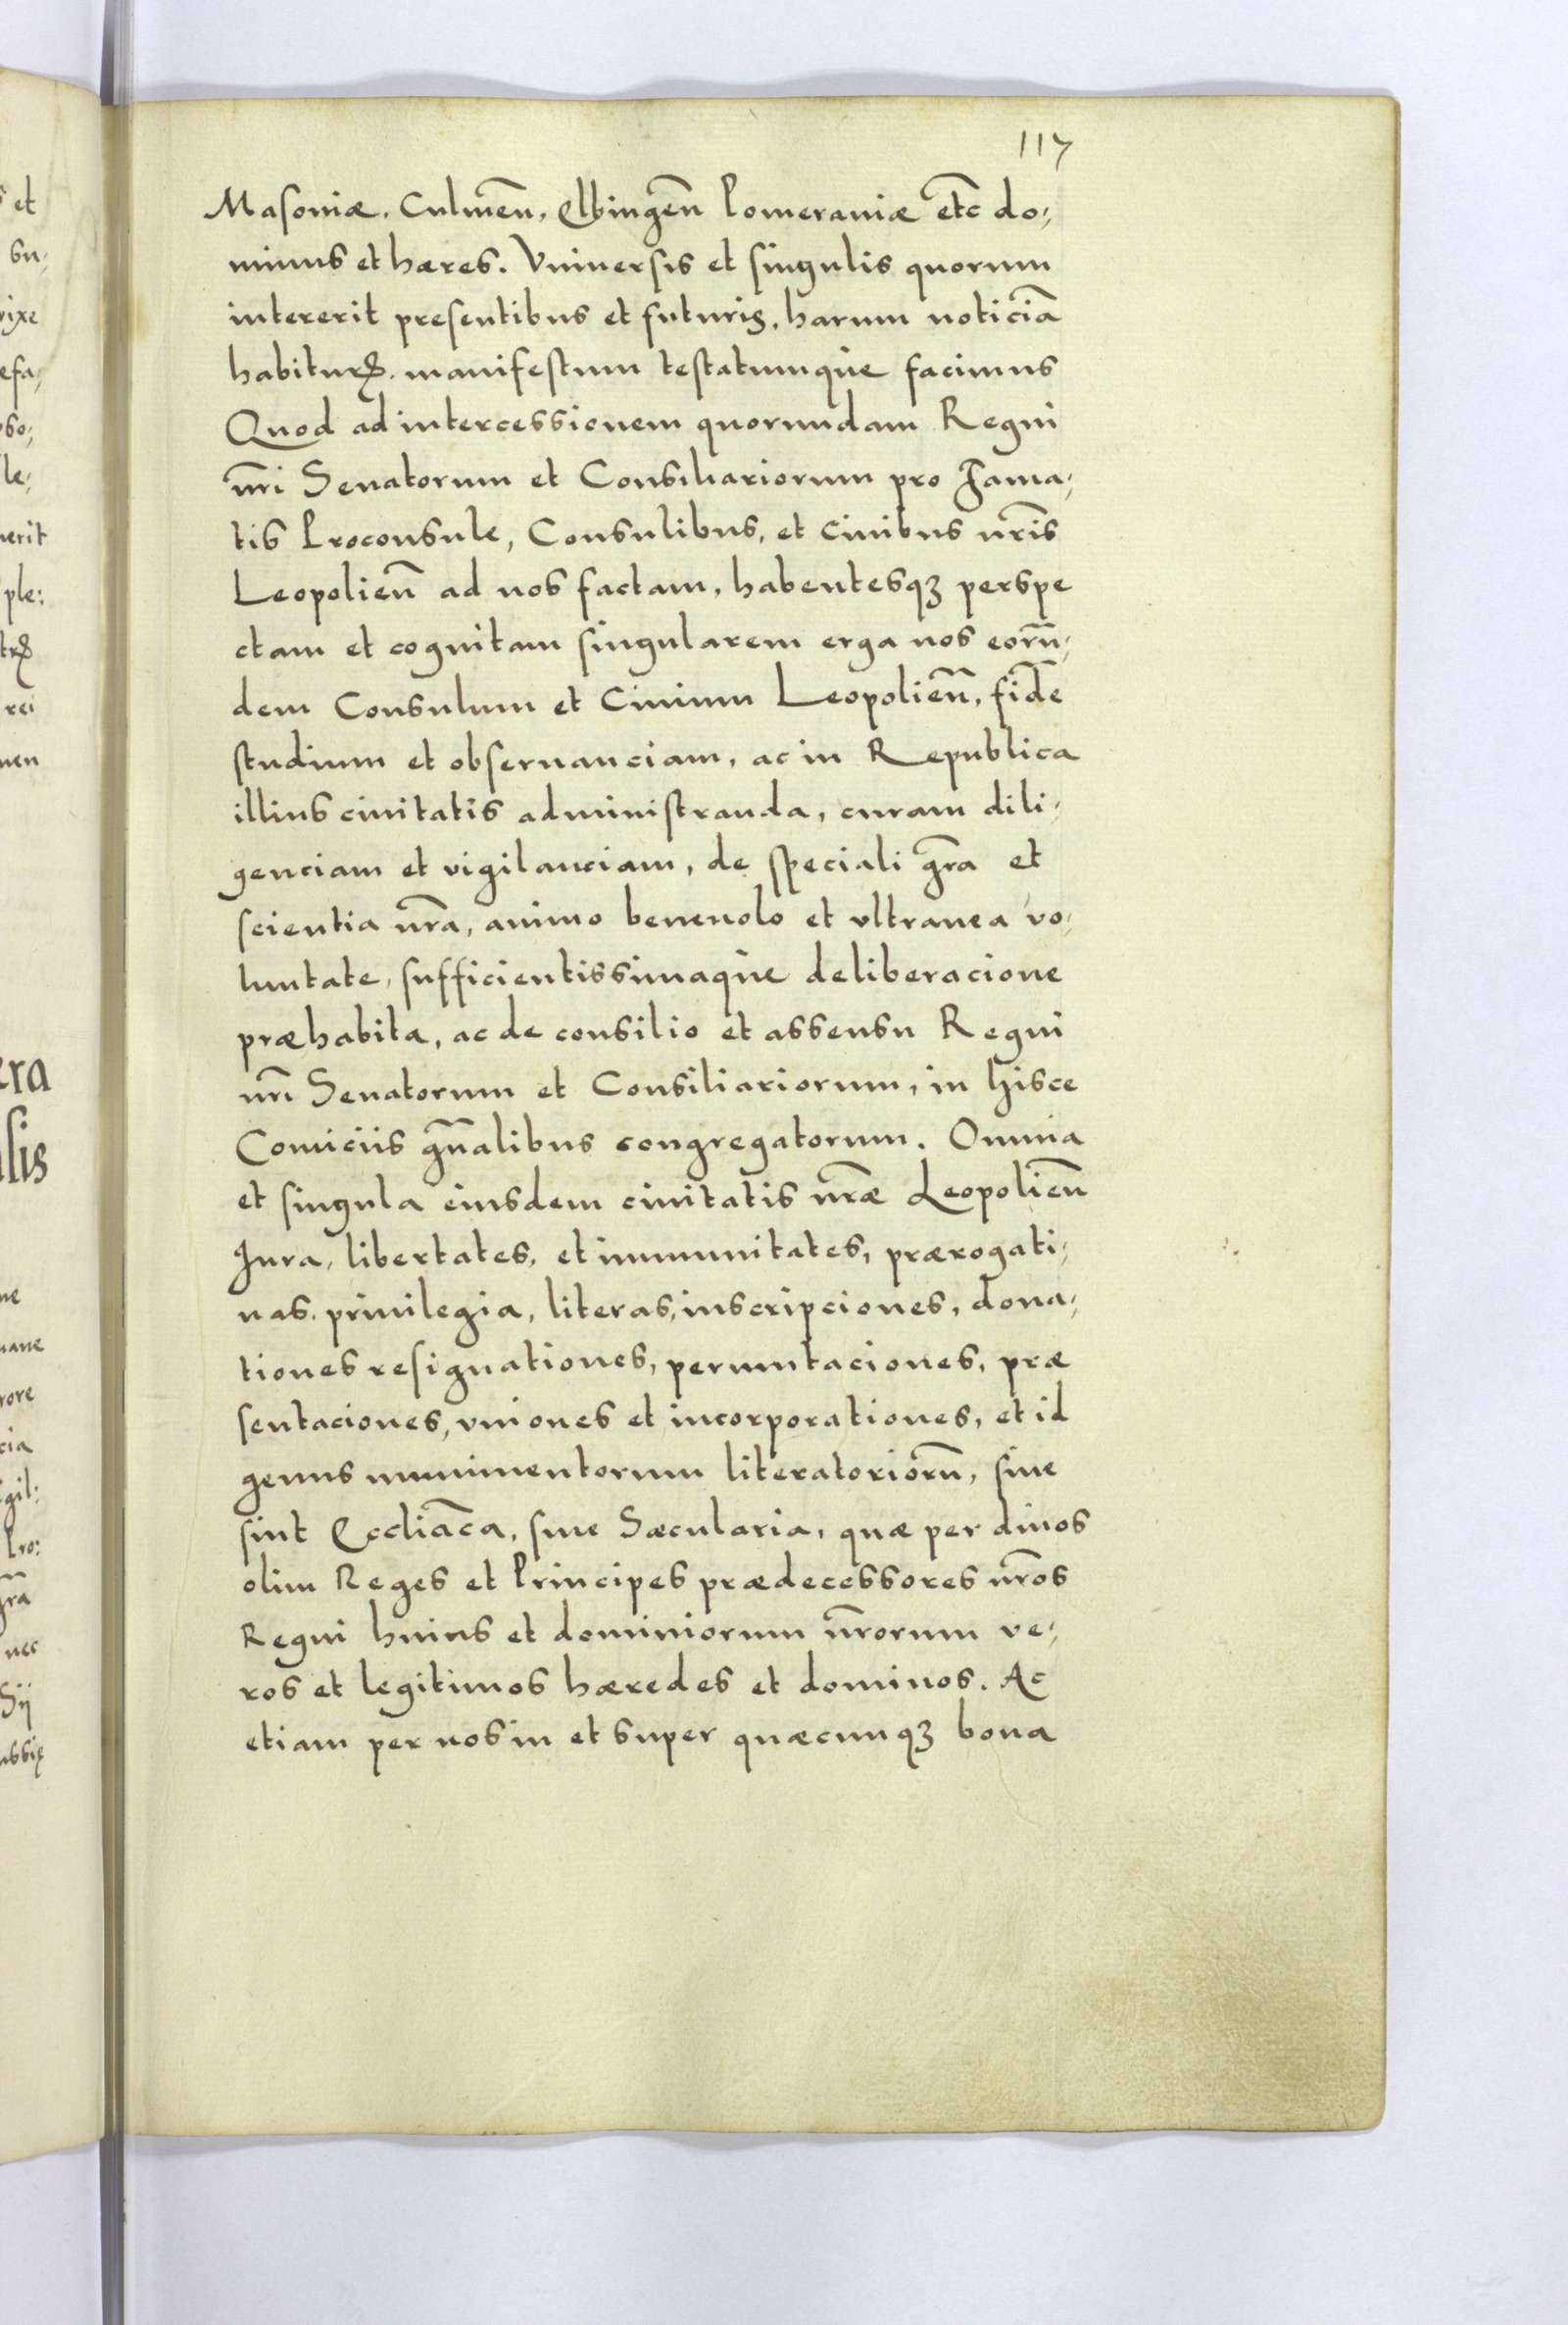 117
Masoviæ, Culmeñ, Elbingeñ Pomeraniæ etc̃ do,
minus et hæres. Vniversis et singulis quorum
intererit presentibus et futuris, harum noticiã
habiturꝝ. manifestum testatumque facimus
Quod ad intercessionem quorundam Regni
nr̃i Senatorum et Consiliariorum pro Fama,
tis Proconsule, Consulibus, et Ciuibus nr̃is
Leopolieñ ad nos factam, habentesqꝫ perspe
ctam et cognitam singularem erga nos eorũ,
dem Consulum et Ciuium Leopolieñ, fidẽ
studium et obseruanciam, ac in Republica
illius ciuitatis administranda, curam dili,
genciam et vigilanciam, de speciali gr̃a et
scientia nr̃a, animo beneuolo et vltranea vo,
luntate, sufficientissimaque deliberacione
præhabita, ac de consilio et assensu Regni
nr̃i Senatorum et Consiliariorum, in hisce
Comiciis gñalibus congregatorum. Omnia
et singula eiusdem ciuitatis nr̃æ Leopolieñ
Iura, libertates, et immunitates, prærogati,
uas. priuilegia, literas, inscripciones, dona,
tiones resignationes, permutaciones, præ
sentaciones, vniones et incorporationes, et id
genus munimentorum literatoriorũ, siue
sint Ecclĩaca, siue Sæcularia, quæ per diuos
olim Reges et Principes prædecessores nr̃os
Regni huius et dominiorum nr̃orum ve,
ros et legitimos hæredes et dominos. Ac
etiam per nos in et super quæcunqꝫ bona